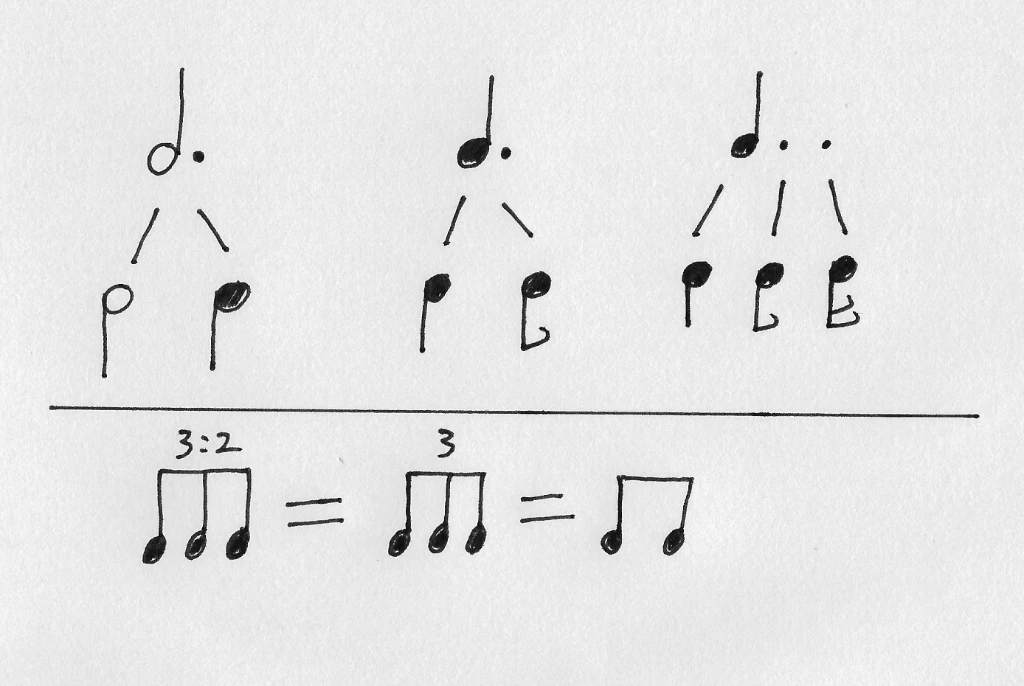 3:2 3